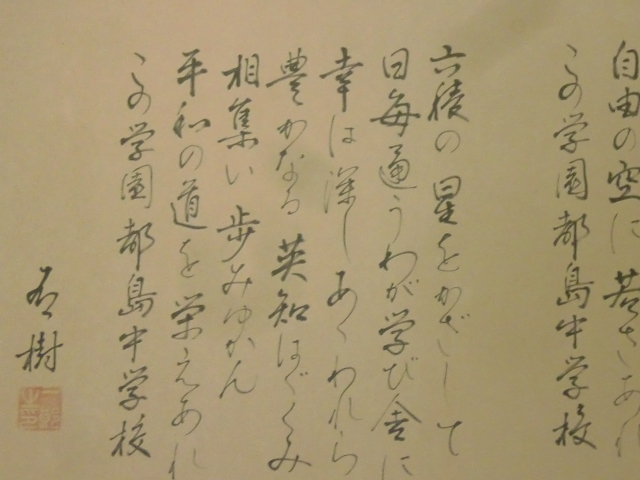 自由の空に若さあれ
この学園都島中学校
六稜の星をかざして
日毎通うわが学び舎に
幸は深しあゝわれら
豊かなる英知はぐくみ
相集い歩みゆかん
平和の道を栄えあれ
この学園都島中学校